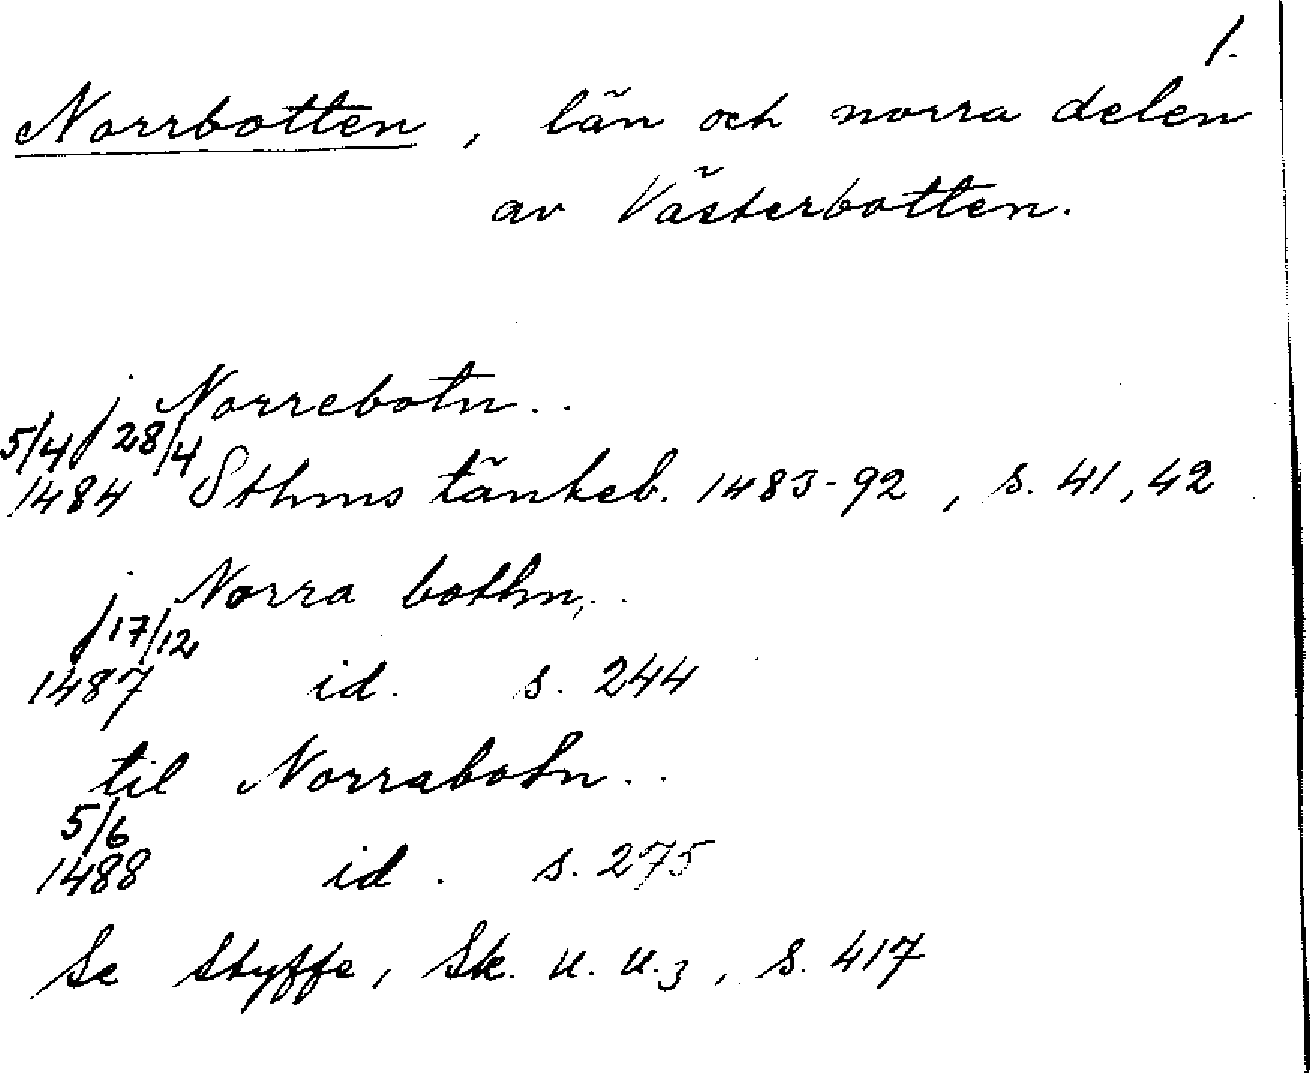 1.
Norrbotten, län och norra delen
av Västerbotten.
j Norrebotn..
5/4, 28/4
1484 Sthms tänkeb. 1483-92, s. 41, 42
j Norra bothn..
17/12
1487 id. s. 244
til Norrabotn..
5/6
1488 id. s. 275
Se Styffe, Sk. u. u.3, s. 417